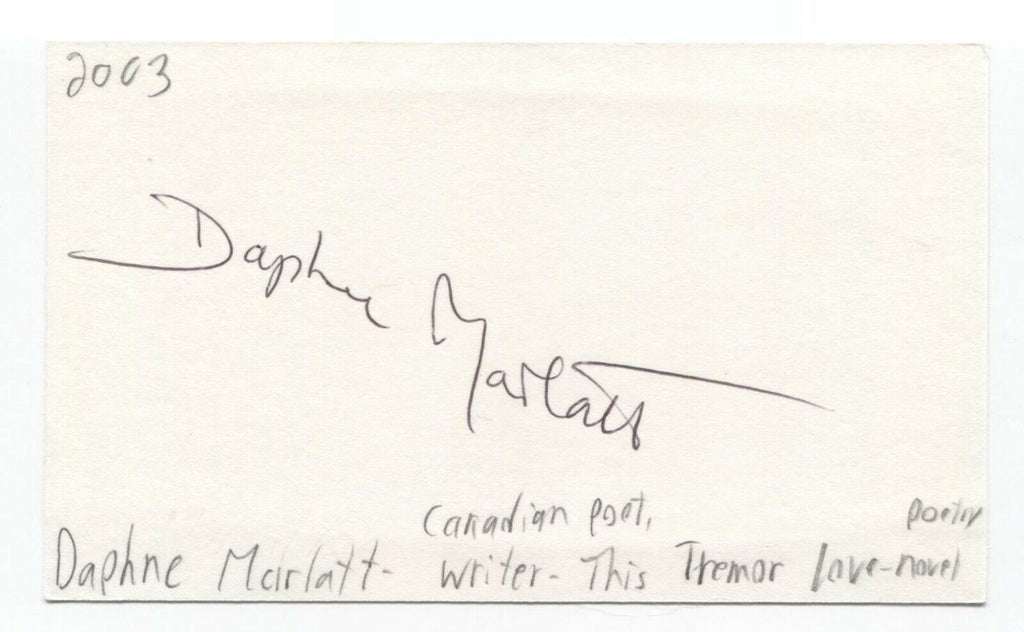 2003
Daphne Marlatt
Canadian poet, poetry
Daphne Marlatt- writer- This Tremor love-novel